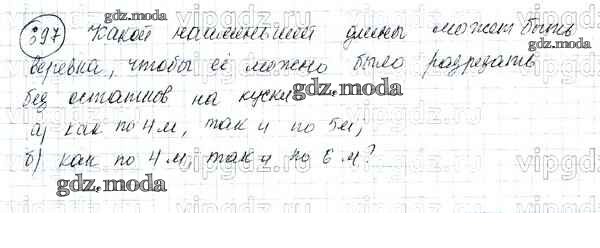 397 Какой наименьшей длины может быть
верёвка, чтобы её можно было разрезать
без остатков на куски
а) как по 4 м, так и по 5 м;
б) как по 4 м, так и по 6 м?
gdz.moda
gdz.moda
gdz.moda
gdz.moda
vipgdz